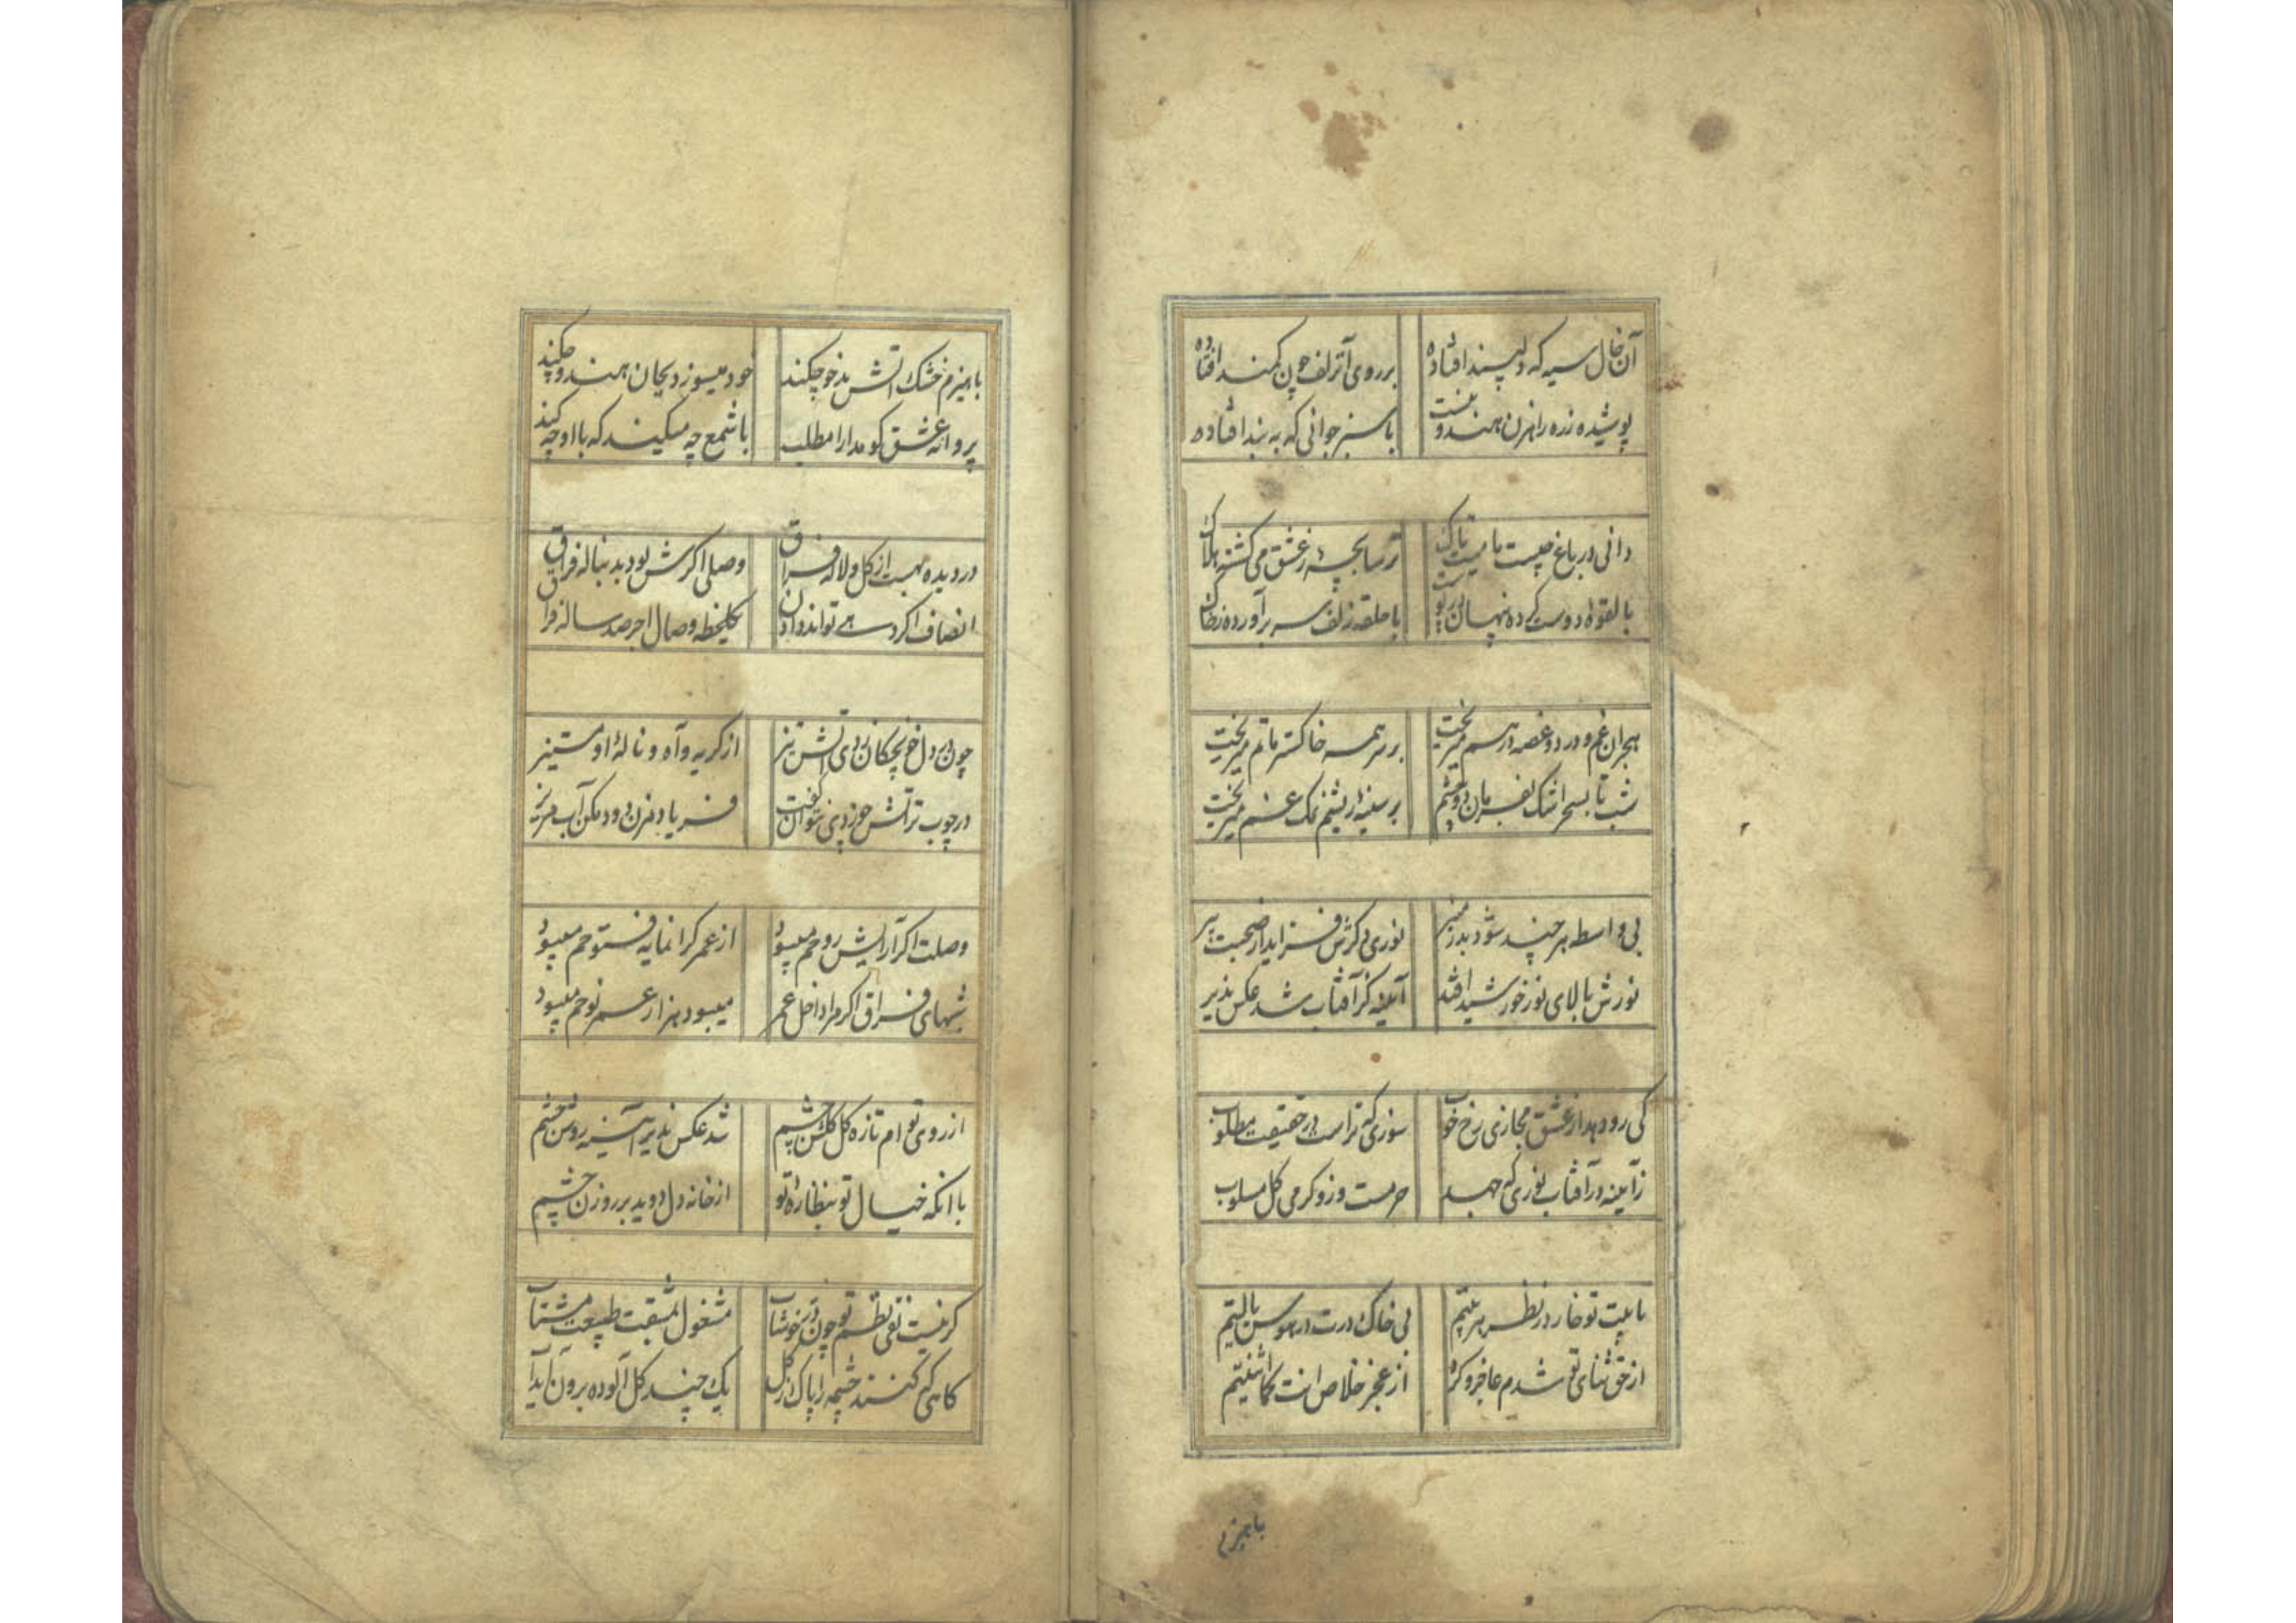 آن خال سیه که دلپسند افتاده
بر روی آنزلف چون کمند افتاده
پوشیده زره راهزن هندوئیست
یا سبز جوانی که به بند افتاده
دانی در باغ چیست با میت تاک
ترسا بچهٔ ز عشق می گشته هلاک
با حلقه زلف سر برآورده ز خاک
هجران غم و درد و غصه درهم میریخت
بر سر همه خاکستر ماتم میریخت
شب تا بسحر اشک بفرمان دو چشم
بر سینه ریشم نمک غم میریخت
بی واسطه هر چند شود بدر منیر
نوری دگرش فزاید از صحبت پیر
نورش بالای نور خورشید افتد
آیینه کز آفتاب شد عکس پذیر
کی رو دهد از عشق مجازی رخ خوب
سوزی که تراست در حقیقت مطلوب
زآیینه در آفتاب نوری که جهد
جرمست وزو گرمی کل مسلوب
با پیت تو خار در نظر بستیم
بی خاک درت در هوس بالیتم
از حق ثنای تو شدم عاجز و گر
از عجز خلاص
باهیزم
با هیزم خشک آتش بدخو چکند
خود میسوزد بجان هندو چکند
پروانه عشق گو مدارا مطلب
با شمع چه میکند که با او چکند
در دیده بهست از گل و لاله فراق
وصلی اگرش بود بدنباله فراق
انصاف اگر دهی توانند دادن
یکلحظه وصال اجر صد ساله فراق
چون در دل خونچکان زدی آتش تیز
از گریه و آه و نالهٔ او مستیز
در چوب تر آتش چو زدی نتوان گفت
فریاد مزن دود مکن آب مریز
وصلت اگر آرایش روحم میبود
از عمر گرانمایه فتوحم میبود
شبهای فراق اگر مرا داخل عمر
میبود هزار عمر نوحم میبود
از روی توام تازه گل گلشن چشم
شد عکس پذیر آینه روشن چشم
با آنکه خیال تو بنظاره تو
از خانه دل دوید بر روزن چشم
گر نیست تقی نظم تو چون در خوشاب
مشغول مشقت طبیعت مشتاب
گاهی که کنند چشمه را پاک از گل
یک چند گل آلوده برون آید آب